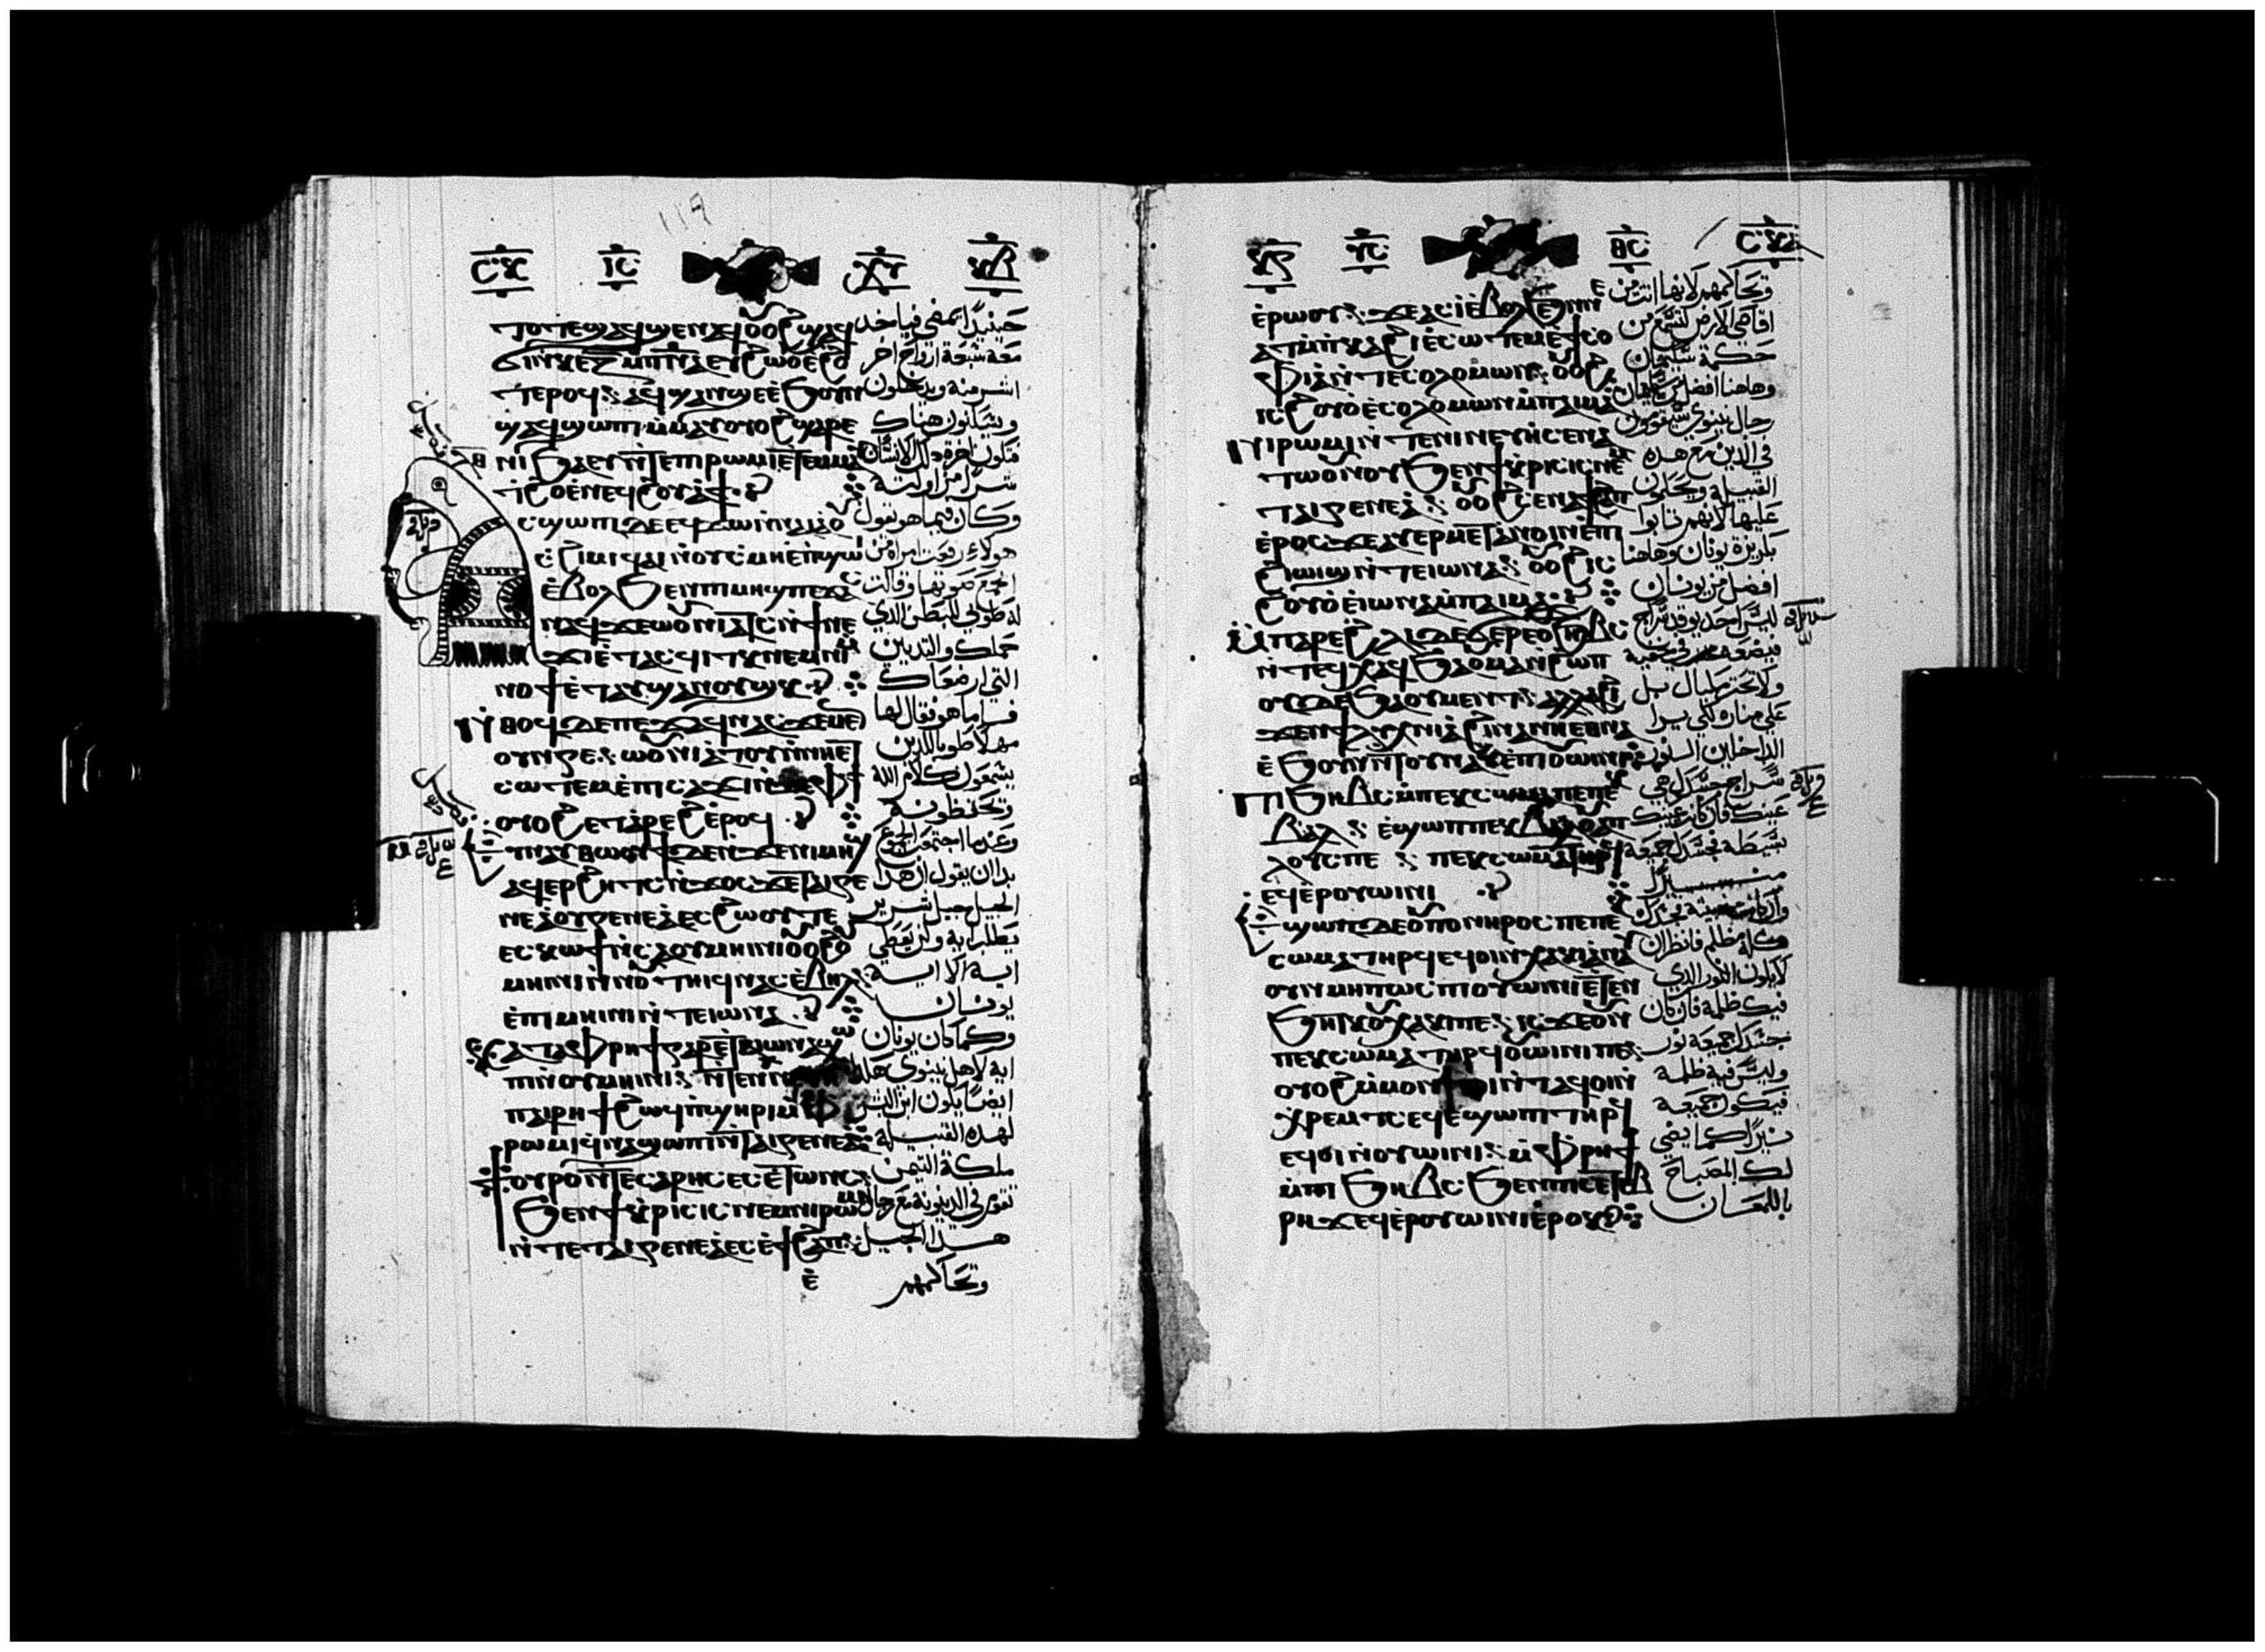 119
ⲧⲟⲧⲉ ϣⲁϥϣⲉⲛⲁϥ ⲟⲩⲟϩ ϣⲁϥ
ⲧⲉⲣⲟϥ ϣⲁⲩϣⲉ ⲉϧⲟⲩⲛ
ϣⲁϥϣⲱⲡⲓ ⲙⲙⲁⲩ ⲟⲩⲟϩ ϣⲁⲣⲉ
ⲛⲓϧⲁⲉⲩ ⲛⲧⲉ ⲡⲓⲣⲱⲙⲓ ⲉⲧⲉⲙⲙⲁⲩ
ϩⲟ ⲉⲛⲉϥϩⲟⲩⲁϯ
ⲥϣⲱⲡⲓ ⲇⲉ ⲉϥϫⲱ ⲛⲛⲁⲓ ⲁ ⲟⲩ
ⲥϩⲓⲙⲓ ϥⲁⲓ ⲛⲟⲩⲥⲙⲏ ⲉⲡϣⲱⲓ
ⲉⲃⲟⲗ ϧⲉⲛ ⲡⲓⲙⲏϣ ⲡⲉϫⲁⲥ
ⲛⲁϥ ϫⲉ ⲱⲟⲩⲛⲓⲁⲧⲥ ⲛϯⲛⲉ
ϫⲓ ⲉⲧⲁⲥϥⲓⲧⲕ ⲛⲉⲙ ⲛⲓ
ⲙⲛⲟϯ ⲉⲧⲁⲩϣⲁⲛⲟⲩϣⲕ
ⲛⲑⲟϥ ⲇⲉ ⲡⲉϫⲁϥ ⲛⲁⲥ ϫⲉ ⲙⲉ
ⲟⲩⲛⲅⲉ ⲱⲟⲩⲛⲓⲁⲧⲟⲩ ⲛⲛⲏⲉⲧ
ⲥⲱⲧⲉⲙ ⲉⲡⲥⲁϫⲓ ⲛⲧⲉ ⲫϯ
ⲟⲩⲟϩ ⲉⲧⲁⲣⲉϩ ⲉⲣⲟϥ
ⲛⲁⲩⲑⲱⲟⲩϯ ⲇⲉ ⲛϫⲉ ⲛⲓⲙⲏϣ
ⲁϥⲉⲣϩⲏⲧⲥ ⲛϫⲟⲥ ϫⲉ ⲧⲁⲓⲅⲉ
ⲛⲉⲁ ⲟⲩⲅⲉⲛⲉⲁ ⲉⲥϩⲱⲟⲩ ⲧⲉ
ⲉⲥⲕⲱϯ ⲛⲥⲁ ⲟⲩⲙⲏⲓⲛⲓ ⲟⲩⲟϩ
ⲙⲏⲓⲛⲓ ⲛⲛⲟⲩⲧⲏⲓϥ ⲛⲁⲥ ⲉⲃⲏⲗ
ⲉⲡⲓⲙⲏⲓⲛⲓ ⲛⲧⲉ ⲓⲱⲛⲁ
ⲕⲁⲧⲁ ⲫⲣⲏϯ ⲅⲁⲣ ⲉⲧⲁ ⲓⲱⲛⲁ ϣⲱ
ⲡⲓ ⲛⲟⲩⲙⲏⲓⲛⲓ
ⲡⲁⲓⲣⲏϯ ϩⲱϥ ⲡϣⲏⲣⲓ ⲙⲫ
ⲣⲱⲙⲓ ϥⲛⲁϣⲱⲡⲓ ⲛⲧⲁⲓⲅⲉⲛⲉⲁ
ⲧⲟⲩⲣⲱ ⲛⲧⲉ ⲥⲁⲣⲏⲥ ⲉⲥⲉⲧⲱⲛⲥ
ϧⲉⲛ ϯⲕⲣⲓⲥⲓⲥ ⲛⲉⲙ ⲛⲓⲣⲱⲙⲓ
ⲛⲧⲉ ⲧⲁⲓⲅⲉⲛⲉⲁ ⲉⲥⲉϯϩⲁⲡ
ⲉ
حينيدًا يمضي فياخد
معه سبعة ارواح اخر
اشر منه ويدخلون
ويسكنون هناك
فتكون اخرة دلك الانسان
شر من اوليته
وكان فيما هو يقول
هولاء رفعت امراة من
الجمع صوتها وقالت
له طوبي للبطن الذي
حملك والتديين
التي ارضعاك
فاما هو فقال لها
مهلا طوبا للدين
يسمعون كلام الله
وتحفظونه
وعندما اجتمعت الجموع
بدا ان يقول ان هدا
الجيل جيل شرير
يطلب اية ولن يعطي
اية الا اية
يونان
وكما كان يونان
اية لاهل نينوي هكدا
ايضًا يكون ابن البشر
لهده القبيلة
ملكة التيمن
تقوم في الدينونة مع رجال
هدا الجيل
وتحاكمهم
ⲉⲣⲱⲟⲩ ϫⲉ ⲁⲥⲓ ⲉⲃⲟⲗ ϧⲉⲛ
ⲁⲩⲣⲏϫⲥ ⲙⲡⲕⲁϩⲓ ⲉⲥⲱⲧⲉⲙ ⲉϯⲥⲟ
ⲫⲓⲁ ⲛⲧⲉ ⲥⲟⲗⲟⲙⲱⲛ ⲟⲩⲟϩ
ⲓⲥ ϩⲟⲩⲟ ⲉⲥⲟⲗⲟⲙⲱⲛ ⲙⲡⲁⲓⲙⲁ
ⲛⲓⲣⲱⲙⲓ ⲛⲧⲉ ⲛⲓⲛⲉⲩⲏ ⲥⲉⲛⲁ
ⲧⲱⲟⲩⲛⲟⲩ ϧⲉⲛ ϯⲕⲣⲓⲥⲓⲥ ⲛⲉⲙ
ⲧⲁⲓⲅⲉⲛⲉⲁ ⲟⲩⲟϩ ⲥⲉⲛⲁϯϩⲁⲡ
ⲉⲣⲟⲥ ϫⲉ ⲁⲩⲉⲣⲙⲉⲧⲁⲛⲟⲓⲛ ⲉⲡ
ϩⲓⲱⲓϣ ⲛⲧⲉ ⲓⲱⲛⲁ ⲟⲩⲟϩ ⲓⲥ
ϩⲟⲩⲟ ⲉⲓⲱⲛⲁ ⲙⲡⲁⲓⲙⲁ
ⲙⲡⲁⲣⲉ ϩⲗⲓ ⲇⲉ ϭⲉⲣⲉ ⲟⲩϧⲏⲃⲥ
ⲛⲧⲉϥⲭⲁϥ ϧⲉⲛ ⲟⲩⲙⲁ ⲛϩⲱⲡ
ⲟⲩⲇⲉ ϧⲁ ⲟⲩⲙⲉⲛⲧ ⲁⲗⲗⲁ ϩⲓ
ϫⲉⲛ ϯⲗⲩⲭⲛⲓⲁ ϩⲓⲛⲁ ⲛⲏⲉⲑⲛⲁ
ⲉϧⲟⲩⲛ ⲛⲧⲟⲩⲛⲁⲩ ⲉⲡⲓⲟⲩⲱⲓⲛⲓ
ⲡⲓϧⲏⲃⲥ ⲙⲡⲉⲕⲥⲱⲙⲁ ⲡⲉ ⲡⲉⲕ
ⲃⲁⲗ ⲉϣⲱⲡ ⲡⲉⲕⲃⲁⲗ
ⲗⲟⲩⲥ ⲡⲉ ⲡⲉⲕⲥⲱⲙⲁ ⲧⲏⲣϥ
ⲉϥⲉⲣⲟⲩⲱⲓⲛⲓ
ⲉϣⲱⲡ ⲇⲉ ⲟⲩⲡⲟⲛⲏⲣⲟⲥ ⲡⲉ ⲡⲉⲕ
ⲥⲱⲙⲁ ⲧⲏⲣϥ ⲉϥⲟⲓ ⲛⲭⲁⲕⲓ ⲁⲛⲁⲩ
ⲟⲩⲛ ⲙⲏⲡⲱⲥ ⲡⲓⲟⲩⲱⲓⲛⲓ ⲉⲧⲉⲛ
ϧⲏⲧⲕ ⲟⲩⲭⲁⲕⲓ ⲡⲉ ⲓⲥϫⲉ ⲟⲩⲛ
ⲡⲉⲕⲥⲱⲙⲁ ⲧⲏⲣϥ ⲟⲩⲱⲓⲛⲓ ⲡⲉ
ⲟⲩⲟϩ ⲙⲙⲟⲛ ⲧⲟⲓ ⲛⲧⲁϥ ⲟⲓ ⲛ
ⲭⲣⲉⲙⲧⲥ ⲉϥⲉϣⲱⲡⲓ ⲧⲏⲣϥ
ⲉϥⲟⲓ ⲛⲟⲩⲱⲓⲛⲓ ⲙⲫⲣⲏϯ
ⲙⲡⲓϧⲏⲃⲥ ϧⲉⲛ ⲡⲓⲥⲉⲧⲉⲃ
ⲣⲏϫ ⲉϥⲉⲣⲟⲩⲱⲓⲛⲓ ⲉⲣⲟⲕ
وتحاكمهم لانها اتت من
اقاصي الارض لتسمع من
حكمة سليمان
وهاهنا افضل من سليمان
رجال نينوي سيقومون
في الدين مع هده
القبيلة ويحكمون
عليها لانهم تابوا
بكريزة يونان وهاهنا
افضل من يونان
ليس احد يوقد سراج
فيضعه في خفية
ولا تحت مكيال بل
علي مناره لكي يرا
الداخلين النور
سراج جسدك هي
عينك فان كانت عينك
بسيطة فجسدك جميعه
وان كانت فجسدك
كله مظلم فانظر ان
لا يكون النور الدي
فيك ظلمة فان كان
جسدك جميعه نور
وليس فيه ظلمة
فيكون جميعه
نيرًا كما يضي
لك المصباح
باللمعان